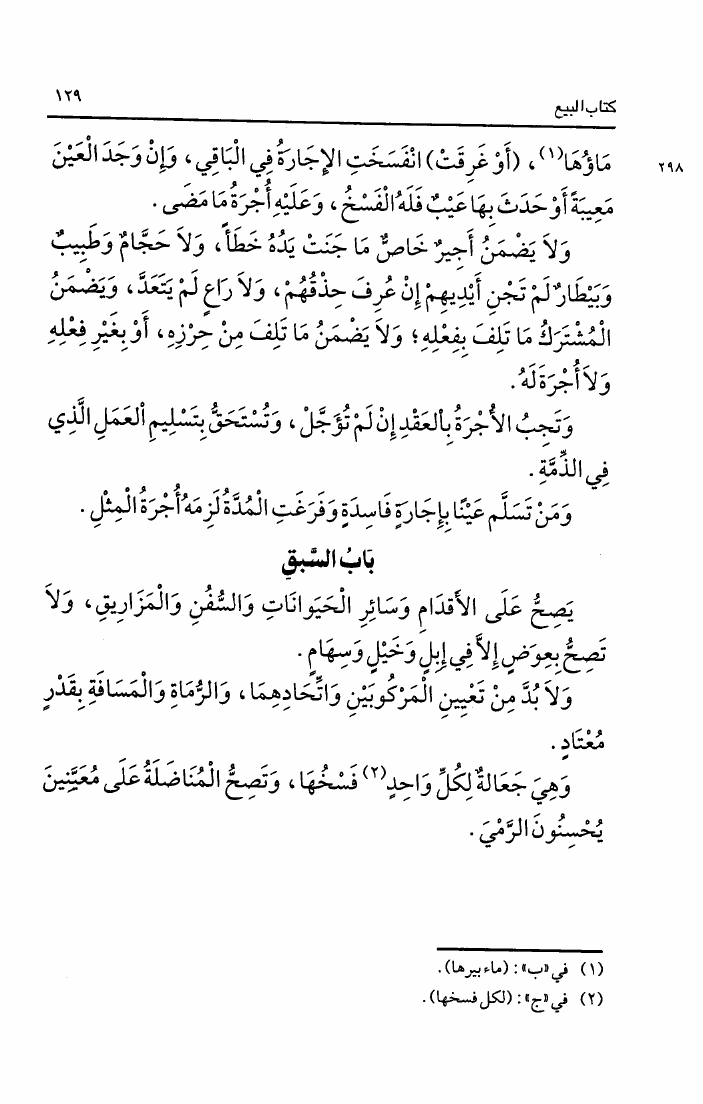 كتاب البيع ١٢٩
٢٩٨ مَاؤُهَا(١)، (أَوْ غَرِقَتْ) انْفَسَخَتِ الإِجَارَةُ فِي الْبَاقِي، وَإِنْ وَجَدَ الْعَيْنَ
مَعِيبَةً أَوْ حَدَثَ بِهَا عَيْبٌ فَلَهُ الْفَسْخُ، وَعَلَيْهِ أُجْرَةُ مَا مَضَى.
وَلاَ يَضْمَنُ أَجِيرٌ خَاصٌّ مَا جَنَتْ يَدُهُ خَطَأً، وَلاَ حَجَّامٌ وَطَبِيبٌ
وَبَيْطَارٌ لَمْ تَجْنِ أَيْدِيهِمْ إِنْ عُرِفَ حِذْقُهُمْ، وَلاَ رَاعٍ لَمْ يَتَعَدَّ، وَيَضْمَنُ
الْمُشْتَرَكُ مَا تَلِفَ بِفِعْلِهِ؛ وَلاَ يَضْمَنُ مَا تَلِفَ مِنْ حِرْزِهِ، أَوْ بِغَيْرِ فِعْلِهِ
وَلاَ أُجْرَةَ لَهُ.
وَتَجِبُ الأُجْرَةُ بِالْعَقْدِ إِنْ لَمْ تُؤَجَّلْ، وَتُسْتَحَقُّ بِتَسْلِيمِ الْعَمَلِ الَّذِي
فِي الذِّمَّةِ.
وَمَنْ تَسَلَّمَ عَيْنًا بِإِجَارَةٍ فَاسِدَةٍ وَفَرَغَتِ الْمُدَّةُ لَزِمَهُ أُجْرَةُ الْمِثْلِ.
بَابُ السَّبقِ
يَصِحُّ عَلَى الأَقْدَامِ وَسَائِرِ الْحَيَوانَاتِ وَالسُّفُنِ وَالْمَزَارِيقِ، وَلاَ
تَصِحُّ بِعِوَضٍ إِلاَّ فِي إِبِلٍ وَخَيْلٍ وَسِهَامٍ.
وَلاَ بُدَّ مِنْ تَعْيِينِ الْمَرْكُوبَيْنِ وَاتِّحَادِهِمَا، وَالرُّمَاةِ وَالْمَسَافَةِ بِقَدْرٍ
مُعْتَادٍ.
وَهِيَ جَعَالةٌ لِكُلِّ وَاحِدٍ(٢) فَسْخُهَا، وَتَصِحُّ الْمُنَاضَلَةُ عَلَى مُعَيَّنِينَ
يُحْسِنُونَ الرَّمْيَ.
(١) في «ب»: (ماء بيرها).
(٢) في «ج»: (لكل فسخها).